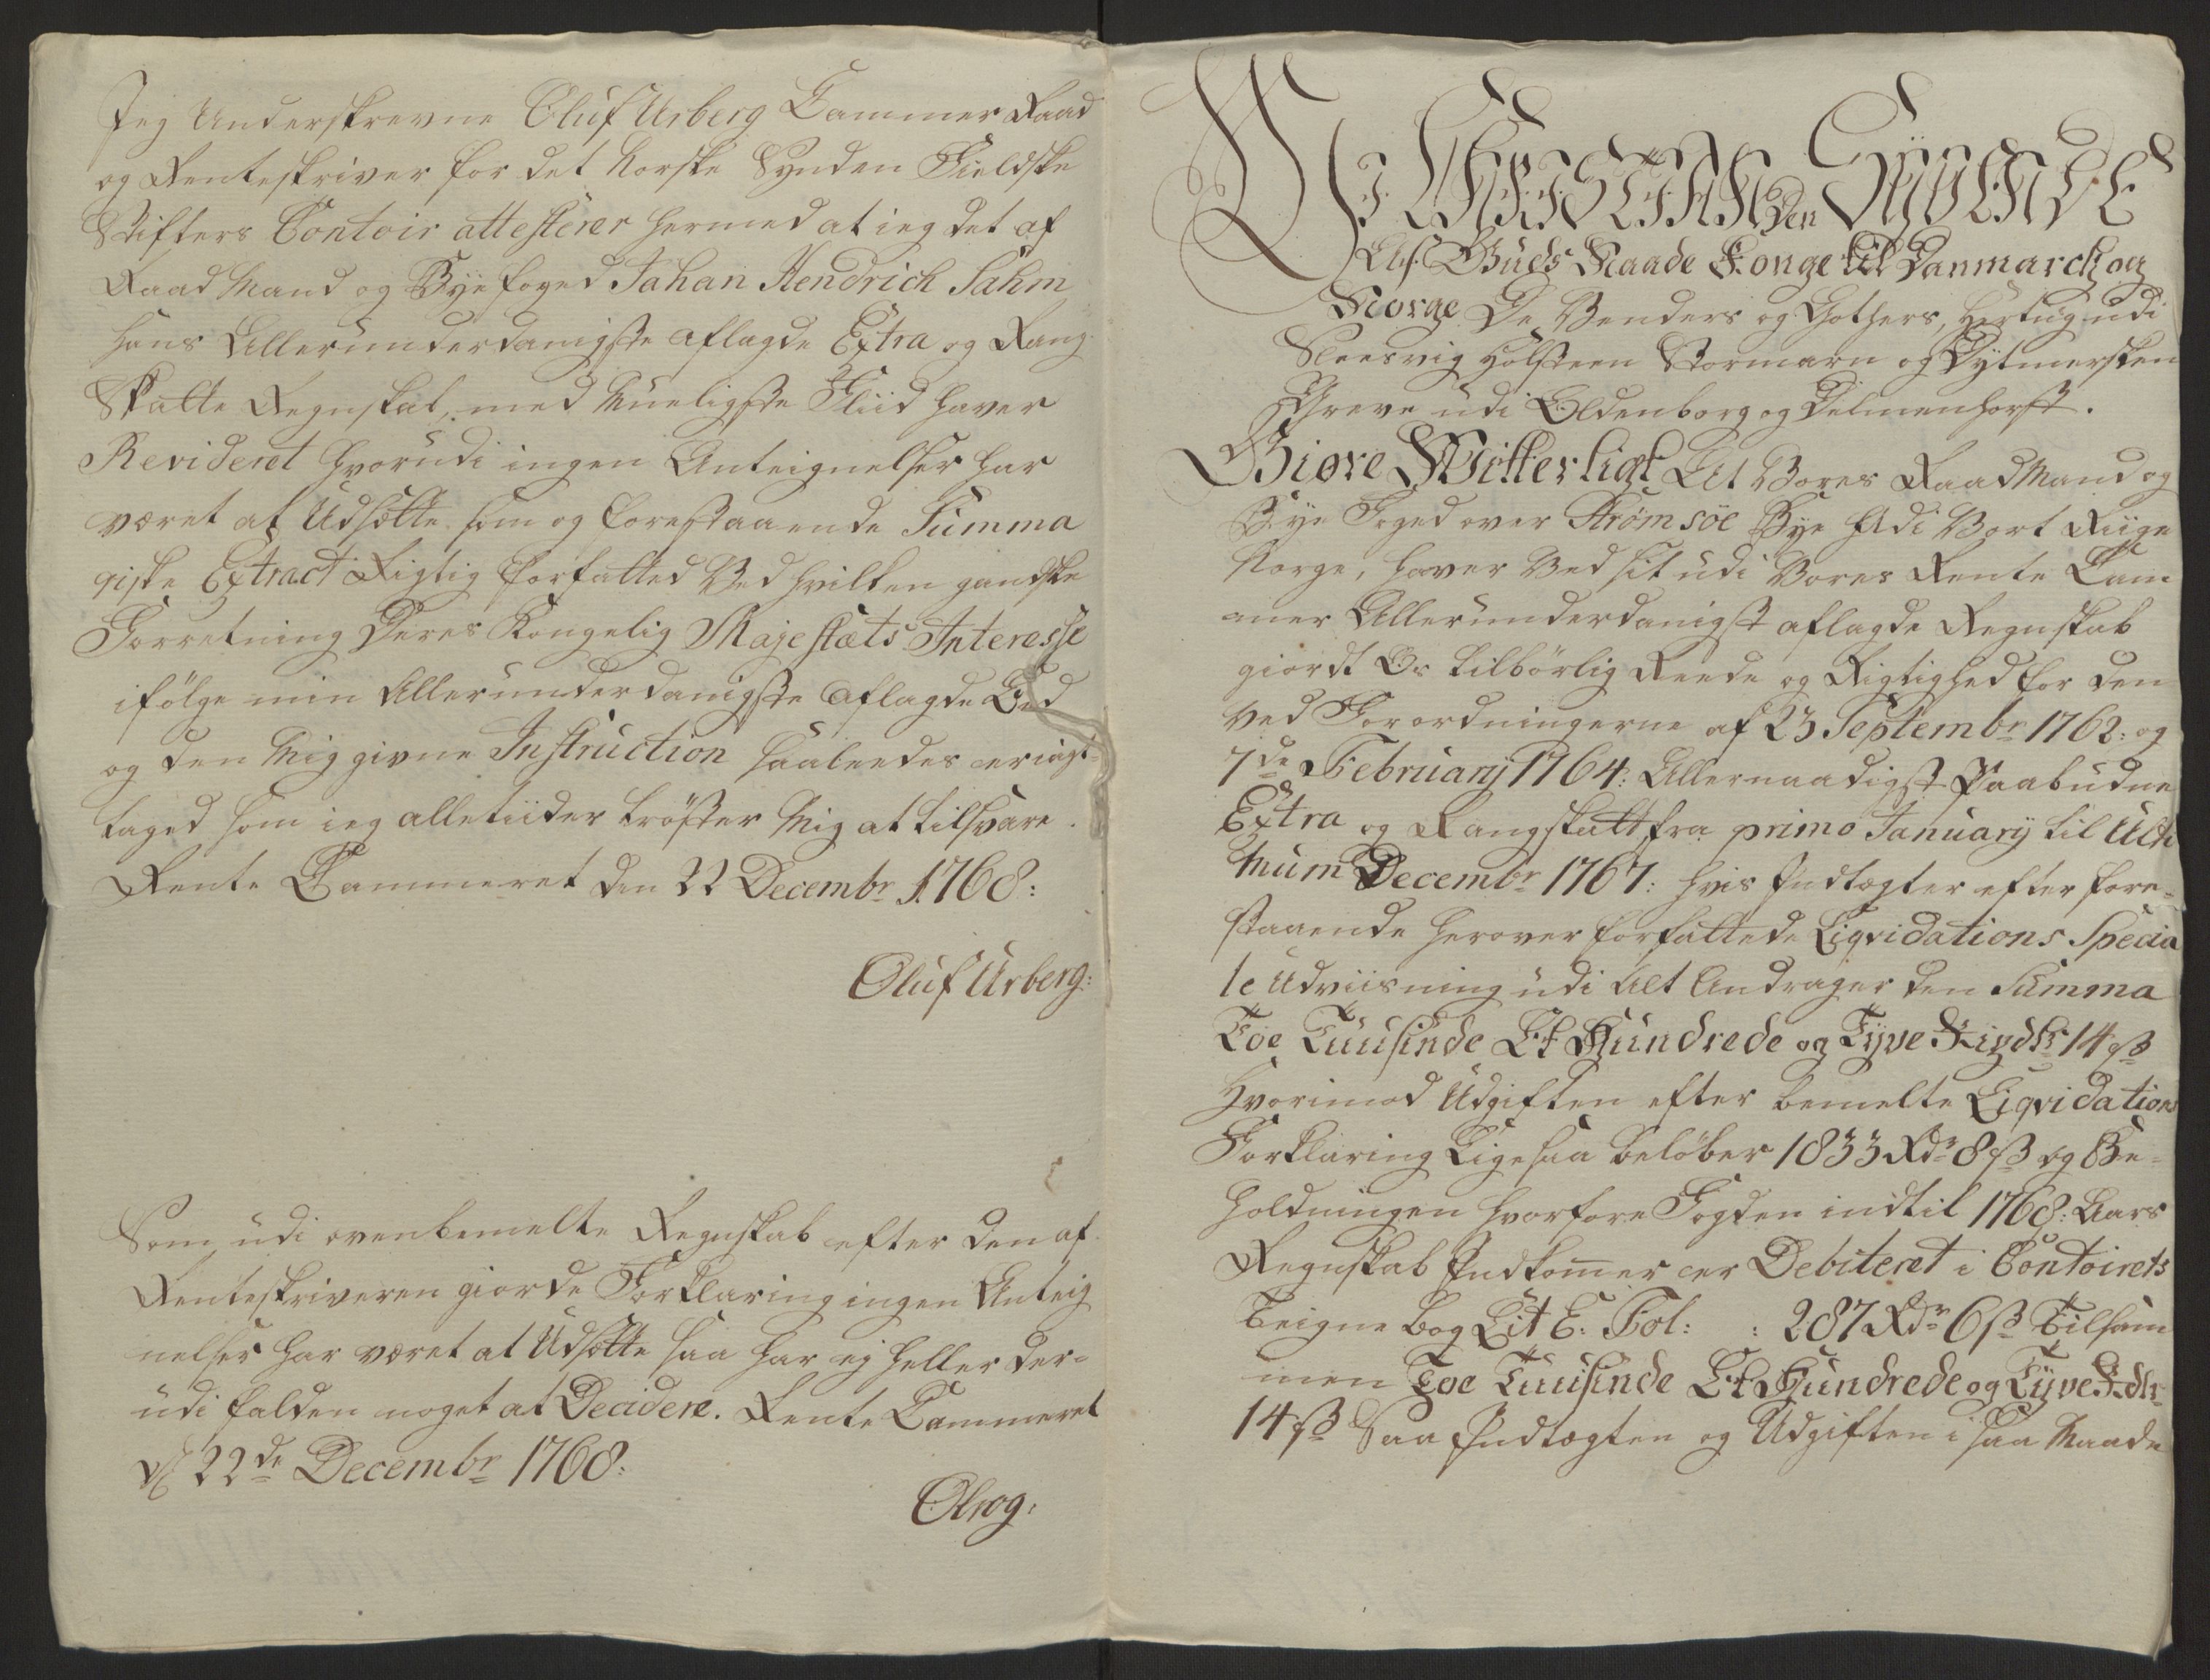 Jeg Underskrevne Oluf Urberg Cammer Raad
og Renteskriver for det Norske Synden Fieldske
Stifters Contoir attesterer hermed at ieg det af
Raad Mand og Bye foged Johan Hendrich Sahm
hans Allerunderdanigste aflagde Extra og Rang
Skatte Regnskab, med Mueligste Fliid haver
Revideret hvorudi ingen Anteignelser har
været at Udsætte som og forestaaende Summa
riske Extract Rigtig forfatted Ved hvilken gandske
Forretning Deres Kongelig Majestæts Interesse
ifölge min Allerunderdanigste aflagde Eed
og den Mig givne Instruction saaleedes er iagt-
taged som ieg alletiider tröster Mig at tilsvare.
Rente Cammeret den 22 Decembr 1768:
Oluf Urberg:
Som udi ovenbemelte Regnskab efter den af
Renteskriveren giorde Forklaring ingen Anteig
nelser har været at Udsætte saa har ej heller der-
udi falden noget at Decidere. Rente Cammeret
d 22de Decembr 1768:
Olrog:
Vi CHRISTIAN Den SYVENDE
Af Guds Naade Konge til Danmarck og
Norge De Venders og Gothers, Hertug udi
Sleesvig Holsteen Stormarn og Dytmersken
Greve udi Oldenborg og Delmenhorst.
Giøre Witterligt At Vores Raad Mand og
Bye Foged over Strømsöe Bye Udi Vort Riige
Norge, haver Ved sit udi Vores Rente Cam
mer Allerunderdanigst aflagde Regnskab
giordt Os tilbörlig Reede og Rigtighed for den
Ved Forordningerne af 23 Septembr 1762: og
7de February 1764: Allernaadigst Paabudne
Extra og Rangskatt fra primo January til Ulti
mum Decembr 1767: hvis Indtægter efter fore-
staaende herover forfattede Liqvidations Specia
le Udviisning udi Alt Andrager den Summa
Toe Tuusinde Et Hundrede og Tyve Rigdlr 14 ß
Hvorimod Udgiften efter bemelte Liqvidations
Forklaring Ligesaa belöber 1833 Rdr 8 ß og Be-
holdningen hvorfore Fogden indtil 1768: Aars
Regnskab Indkommer er Debiteret i Contoirets
Teigne bog Lit E: Fol: : 287 Rdr 6 ß Tilsam
men Toe Tuusinde Et Hundrede og Tyve Rdlr
14 ß Saa Indtægten og Udgiften i saa Maade